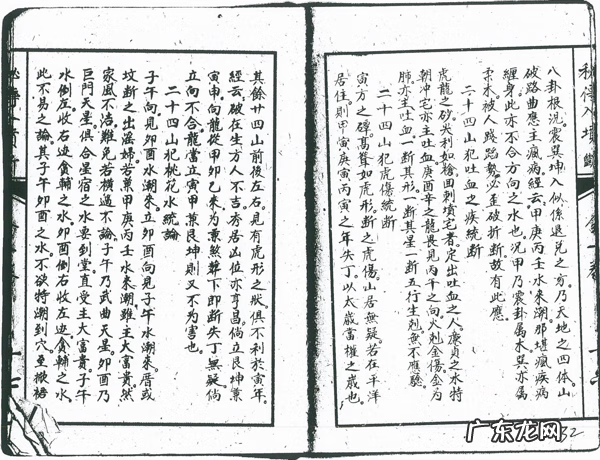 八卦根況。震巽坤入似係退兑之方。乃天地之四体山
破路曲應主瘋病。經云。甲庚丙壬水來潮。那堪瘋疾病
纏身。此亦不合方向之水也。況甲乃震卦屬木巽亦屬
柔木。被人踐踏。勢必歪破折斷。故有此應。
二十四山犯吐血之疾統斷
虎龍之砂。尖利如槍回刺墳宅者。定出吐血之人。廉貞之水特
朝冲宅。亦主吐血。庚酉辛之龍。畏見丙午之向。火剋金傷。金為
肺。亦主吐血。一斷其形。一斷其星。一斷五行生剋。無不應驗。
二十四山犯虎傷統斷
寅方之磹。高聳如虎形。斷之虎傷。山居無疑。若在平洋
居住。則甲寅庚寅丙寅之年失丁。以太歲當權之歲也。
其餘廿四山前後左右。見有虎形之狀。俱不利於寅年。
經云。破在生方人不吉。夯居凶位亦亨昌。倘立艮坤兼
寅甲向。龍從甲卯乙來。為兼煞。葬下即斷失丁無疑。倘
立向不合。龍當立寅甲兼艮坤。則又不為害也。
二十四山犯桃花水統論
子午向見卯酉水潮來。立卯酉向見子午水潮來。厝或
墳斷之出淫婦。若兼甲庚丙壬水來潮。雖主大富貴。然
家風不洽。難免若橫過不論。子午乃武曲天星。卯酉乃
巨門天星。俱合星宿之水。要到堂直受。主大富貴。子午
水倒左收右邊貪輔之水。卯酉倒右收左邊貪輔之水。
此不易之論。其子午卯酉之水。不欲特潮到穴。至掀裙
广东龙网
32